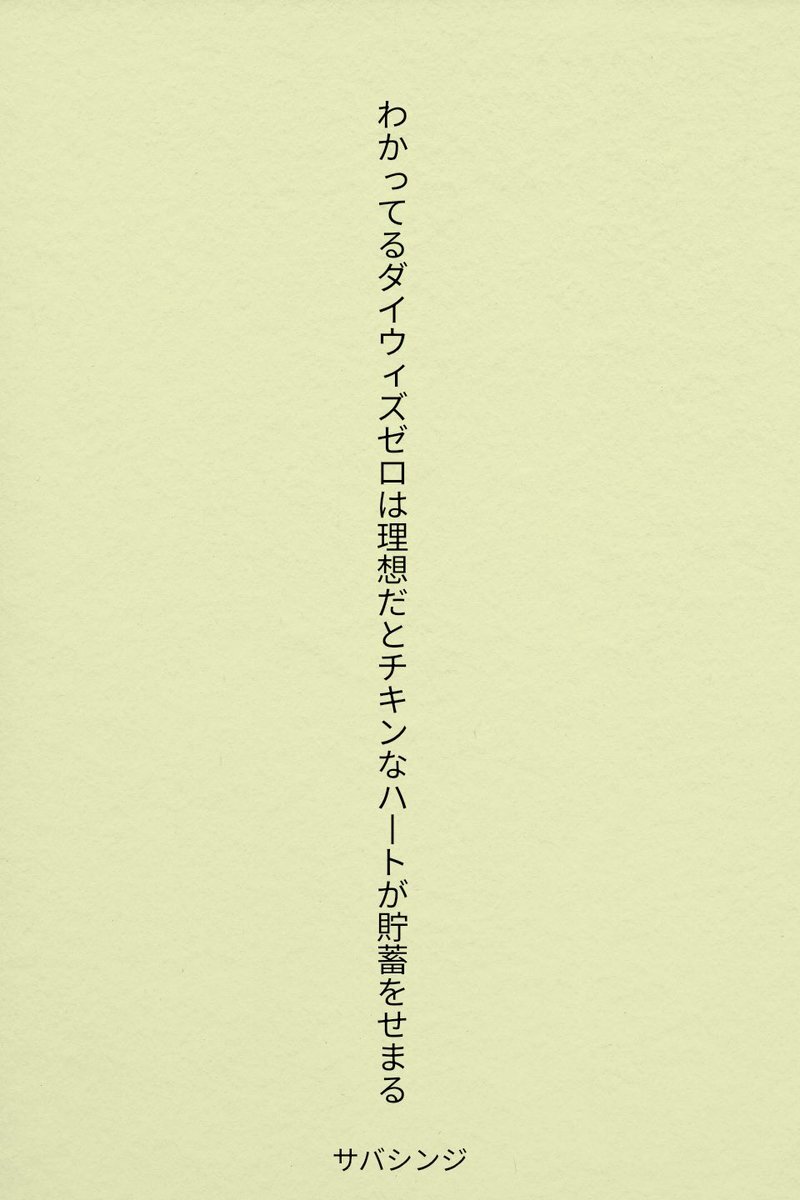 わかってるダイウィズゼロは理想だとチキンなハートが貯蓄をせまる
サバシンジ